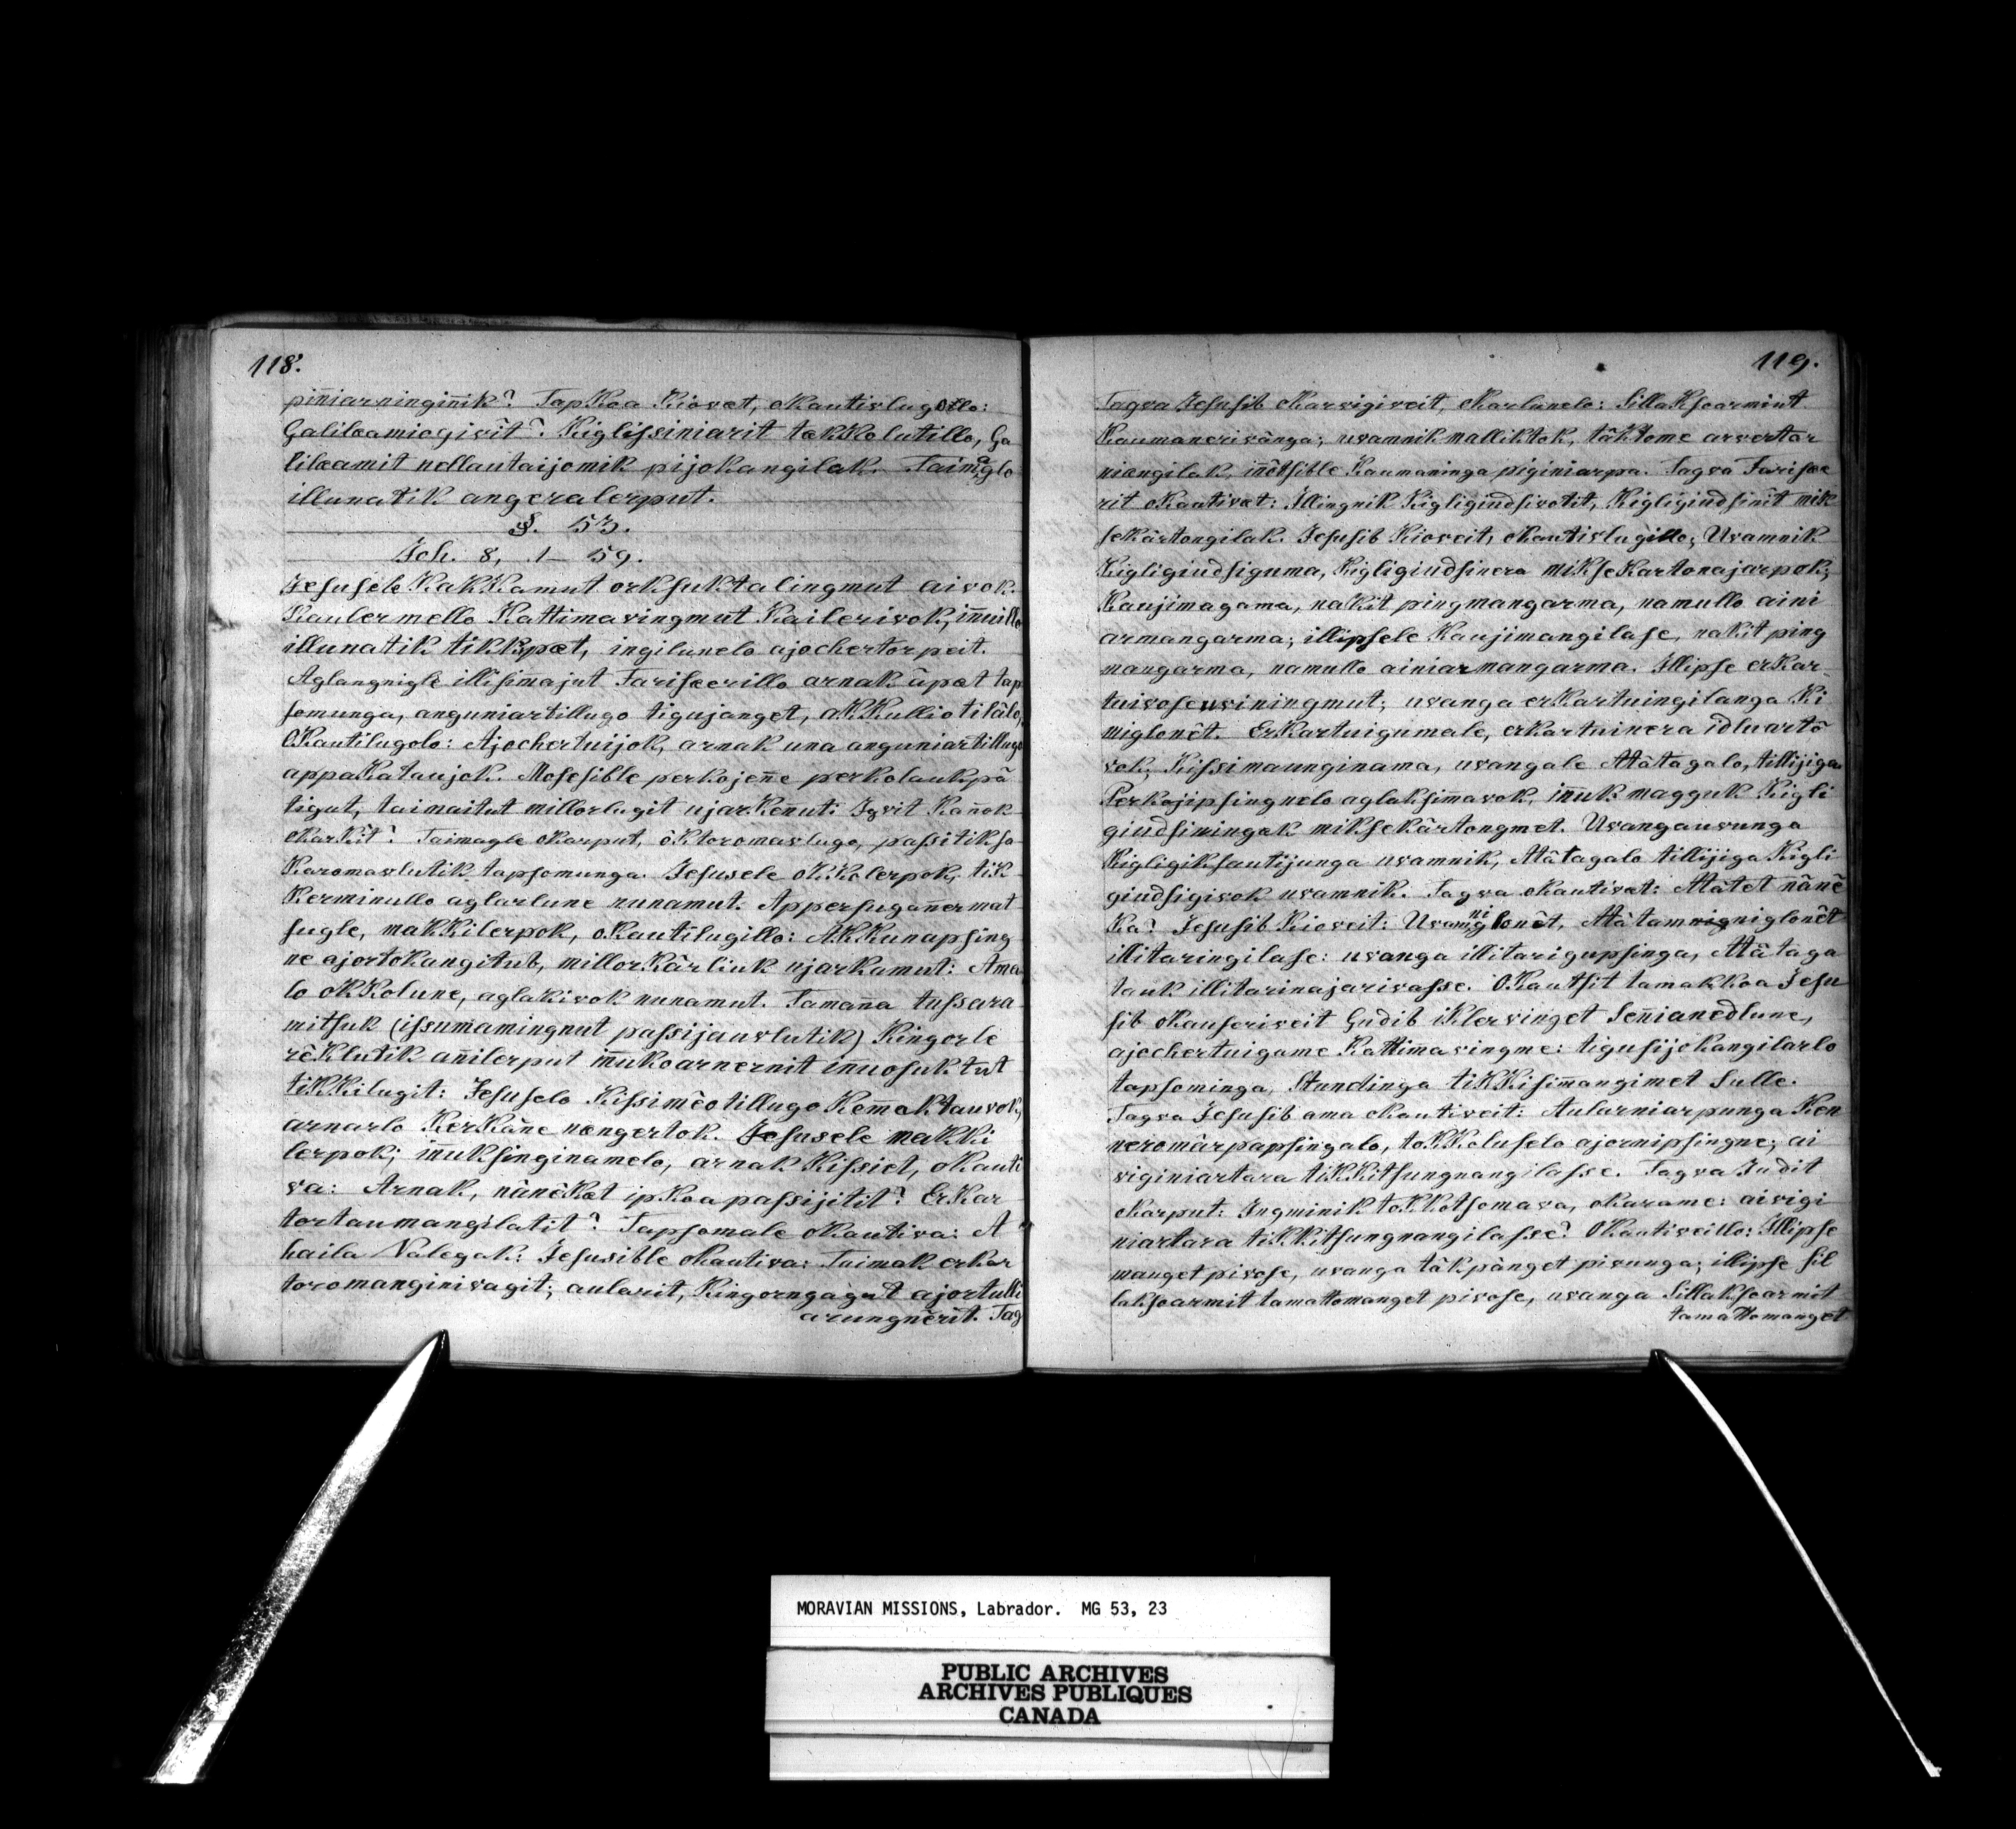 118.
piñiarningiñik? TapKoa Kiovæt, oKautivlugollo:
Galilæamiogivit? Kigliſsiniarit takKolutillo, Ga
lilæamit nellautaijomik pijokangilak. Taimaglo
illunatik angeralerput.
§. 53.
Joh. 8, 1–59.
Jesusele KakKamut orksuktalingmut aivok.
Kaulermello Kattimavingmut Kailerivok, iñuillo
illunatik tikKipæt, ingilunelo ajochertorpeit.
Aglangnigle illisimajut Fariſæerillo arnak ûpæt tap
somunga, anguniartillugo tigujanget, aKKullio tilâlo,
OKautilugolo: Ajochertuijok, arnak una anguniartillugo
appaKataujok. Moſesible perkojeñe perkolaukpâ
tigut, taimaitut millorlugit ujarKeñut: Igvit Kañok
oKarKit? Taimagle oKarput, ôktoromavlugo, paſsitikſa
Karomavlutik tapſomunga. Jeſusele oKKolerpok, tik
Kerminullo aglarlune nunamut. Apperſugañermat
ſugle, makKilerpok, oKautilugillo: AKKunapſing
ne ajortoKangitub, millorKârliuk ujarkamut: Ama
lo oKKolune, aglakivok nunamut. Tamaña tuſsara
mitſuk (iſsumamingnut paſsijauvlutik) Kingorle
rêklutik añilerput iñukoarnernit iñuosuktut
tikKilugit: Jeſuselo Kiſsimêotillugo Kemaktauvok,
arnarlo KerKâne nængertok. Jeſusele makKi
lerpok; iñukſinginamelo, arnak Kiſsiet, oKauti
va: Arnak, nânêKæt ipKoa paſsijitit? ErKar
tortaumangilatit? Tapſomale oKautiva: A
haila Nalegak: Jeſusible oKautiva: Taimak erkar
toromanginivagit; aularit, Kingorngagut ajortulli
arungnêrit. Tag
119.
Tagva Jeſusib oKarvigiveit, oKarlunelo: SillaKſoarmiut
Kaumanerivânga; uvamnik malliktok, tâktome arvertar
niangilak, iñôtſible Kaumaninga piginiarpa. Tagva Fariſæe
rit oKautivæt: Illingnik Kigligiudſivotit, Kigligiudſinît mik
ſekârtongilak. Jeſusib Kioveit, oKautivlugillo; Uvamnik
Kigligiudſiguma, Kigligiudſinera mikſeKartonajarpok;
Kaujimagama, nakit pingmangarma, namullo aini
armangarma; illipſele Kaujimangilaſe, nakit ping
mangarma, namullo ainiarmangarma. Illipſe erKar
tuivoſe uviningmut; uvanga erKartuingilanga Ki
miglonêt. ErKartuigumale, erkartuinera idluartô
vok, Kiſsimaunginama, uvangale Attâtagalo, tillijiga.
Perkojipſingnelo aglakſimavok, iñuk magguk Kigli
giudſiningak mikſekârtongmet. Uvangauvunga
Kigligikſautijunga uvamnik, Attâtagalo tillijiga Kigli
giudſigivok uvamnik. Tagva oKautivæt: Attâtet nânê
Ka? Jeſusib Kioveit: Uvamnigiglonêt, Attâtamnigniglonêt
illitaringilaſe: uvanga illitarigupſinga, Attâtaga
tauk illitarinajarivaſse. OKautſit tamakkoa Jeſu
ſib oKauſeriveit Gudib iKlervinget Señianedlune,
ajochertuigame Kattimavingme: tiguſijoKangilarlo
tapſominga, Stundinga tikKiſimangimet Sulle.
Tagva Jeſusib ama oKautiveit: Aularniarpunga Ken
neromârpapſingalo, toKKoluſelo ajornipſingne; ai
viginiartara tikKitſungnangilaſse. Tagva Judit
oKarput: Ingminik toKKotſomava, oKarame: aivigi
niartara tikKitſungnangilaſse? OKautiveillo: Illipſe
manget pivoſe, uvanga tâkpânget pivunga; illipſe ſil
lakſoarmit tamattomanget pivoſe, uvanga Sillakſoarmit
tamattomanget
MORAVIAN MISSIONS, Labrador. MG 53, 23
PUBLIC ARCHIVES
ARCHIVES PUBLIQUES
CANADA